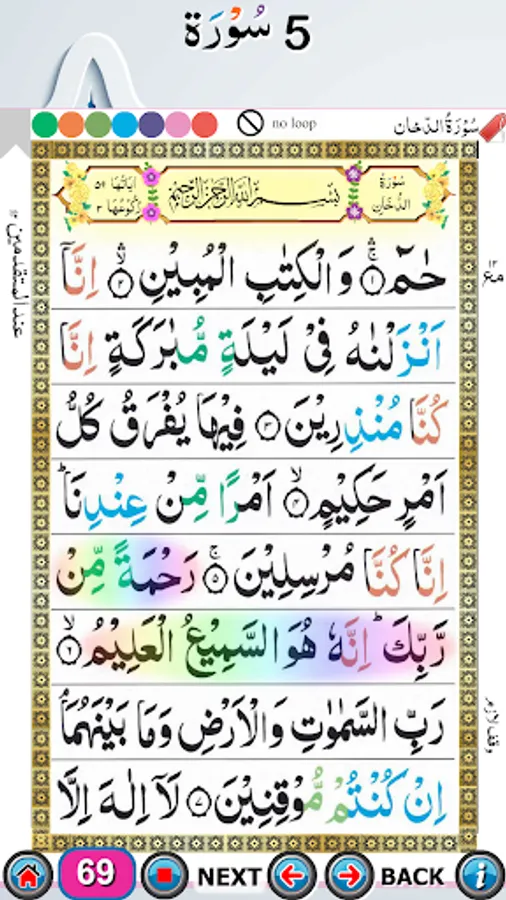 5 سُوْرَة
no loop
سُوْرَةُ الدّخان
سُوْرَةُ الدُّخَانِ
بِسْمِ اللهِ الرَّحْمٰنِ الرَّحِيْمِ
اٰيَاتُهَا ٥٩ رُكُوْعُهَا ٣
حٰمٓ ۚۛ ۝١ وَالْكِتٰبِ الْمُبِيْنِ ۙۛ ۝٢ اِنَّاۤ
اَنْزَلْنٰهُ فِيْ لَيْلَةٍ مُّبٰرَكَةٍ اِنَّا
كُنَّا مُنْذِرِيْنَ ۝٣ فِيْهَا يُفْرَقُ كُلُّ
اَمْرٍ حَكِيْمٍ ۙ ۝٤ اَمْرًا مِّنْ عِنْدِنَا ؕ
اِنَّا كُنَّا مُرْسِلِيْنَ ۚ ۝٥ رَحْمَةً مِّنْ
رَّبِّكَ ؕ اِنَّهٗ هُوَ السَّمِيْعُ الْعَلِيْمُ ۙ ۝٦
رَبِّ السَّمٰوٰتِ وَالْاَرْضِ وَمَا بَيْنَهُمَا ۘ
اِنْ كُنْتُمْ مُّوْقِنِيْنَ ۝٧ لَاۤ اِلٰهَ اِلَّا
عند المتقدمين ١٢
وقف لازم
69 NEXT BACK